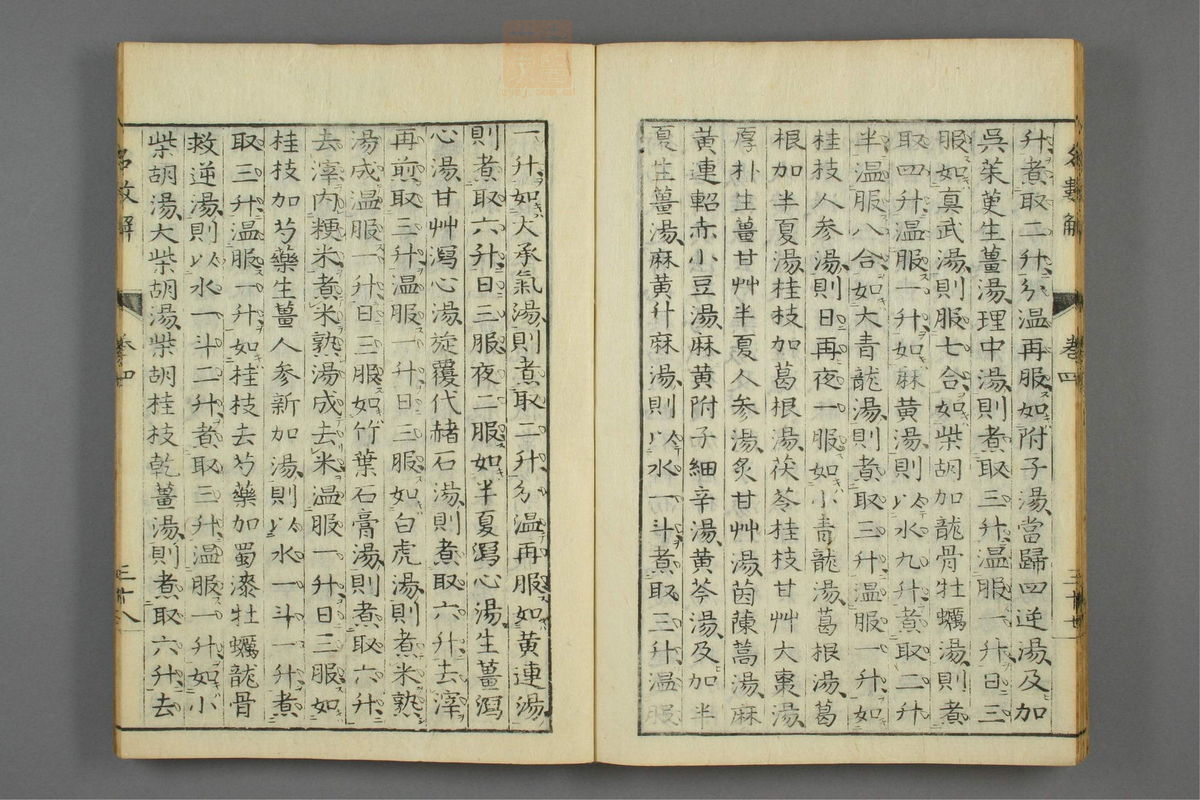 名數解
卷四
升煮取二升分温再服如附子湯當歸四逆湯及加
吳茱萸生薑湯理中湯則煮取三升温服一升日三
服如真武湯則服七合如柴胡加龍骨牡蠣湯則煮
取四升温服一升如麻黄湯則以水九升煮取二升
半温服八合如大青龍湯則煮取三升温服一升如
桂枝人参湯則日再夜一服如小青龍湯葛根湯葛
根加半夏湯桂枝加葛根湯茯苓桂枝甘艸大棗湯
厚朴生薑甘艸半夏人参湯炙甘艸湯茵蔯蒿湯麻
黄連軺赤小豆湯麻黄附子細辛湯黄芩湯及加半
夏生薑湯麻黄升麻湯則以水一斗煮取三升温服
一升如大承氣湯則煮取二升分温再服如黄連湯
則煮取六升日三服夜二服如半夏瀉心湯生薑瀉
心湯甘艸瀉心湯旋覆代赭石湯則煮取六升去滓
再煎取三升温服一升日三服如白虎湯則煮米熟
湯成温服一升日三服如竹葉石膏湯則煮取六升
去滓内粳米煮米熟湯成去米温服一升日三服如
桂枝加芍藥生薑人参新加湯則以水一斗一升煮
取三升温服一升如桂枝去芍藥加蜀漆牡蠣龍骨
救逆湯則以水一斗二升煮取三升温服一升如小
柴胡湯大柴胡湯柴胡桂枝乾薑湯則煮取六升去